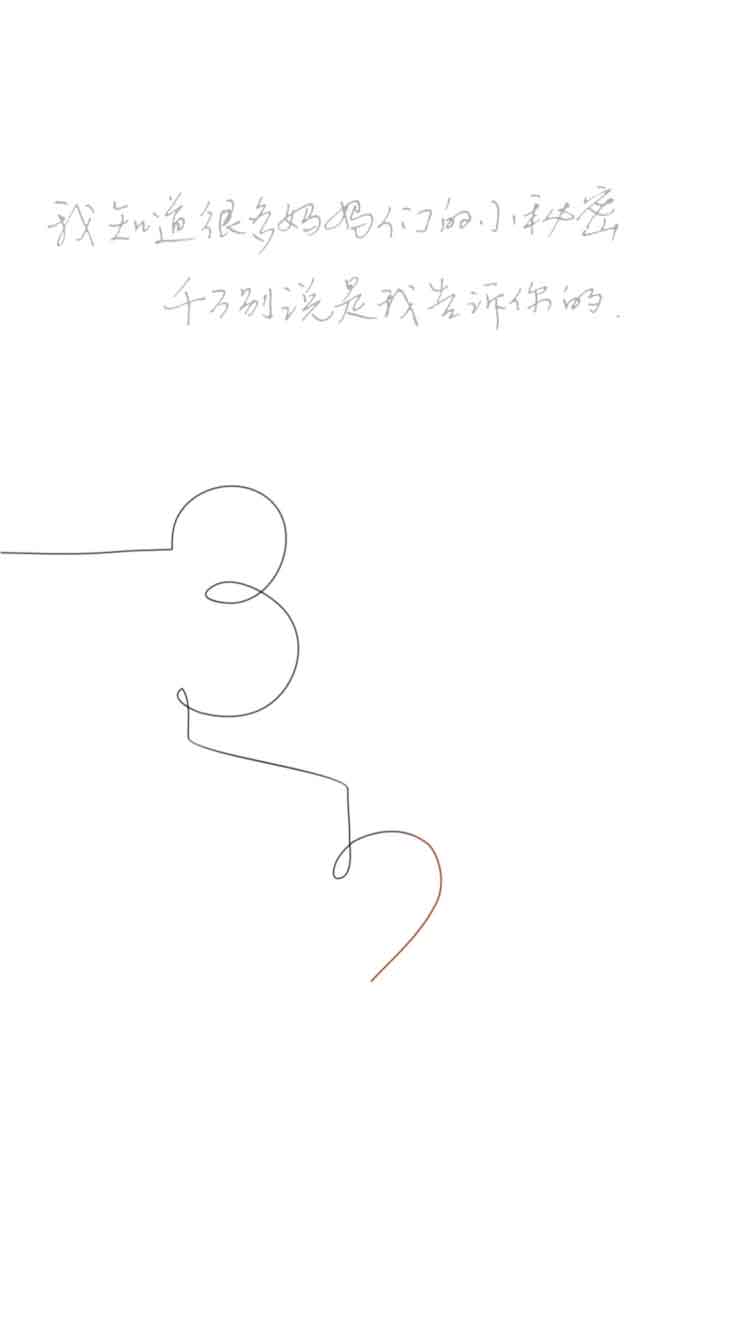 我知道很多妈妈们的小秘密
千万别说是我告诉你的.
3